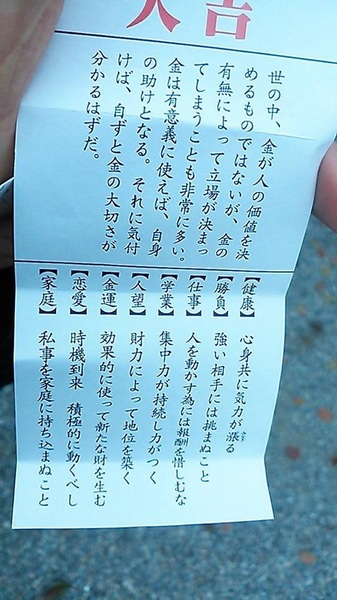 大吉
世の中、金が人の価値を決
めるものではないが、金の
有無によって立場が決まっ
てしまうことも非常に多い。
金は有意義に使えば、自身
の助けとなる。それに気付
けば、自ずと金の大切さが
分かるはずだ。
【健康】心身共に気力が漲る
【勝負】強い相手には挑まぬこと
【仕事】人を動かす為には報酬を惜しむな
【学業】集中力が持続し力がつく
【人望】財力によって地位を築く
【金運】効果的に使って新たな財を生む
【恋愛】時機到来 積極的に動くべし
【家庭】私事を家庭に持ち込まぬこと